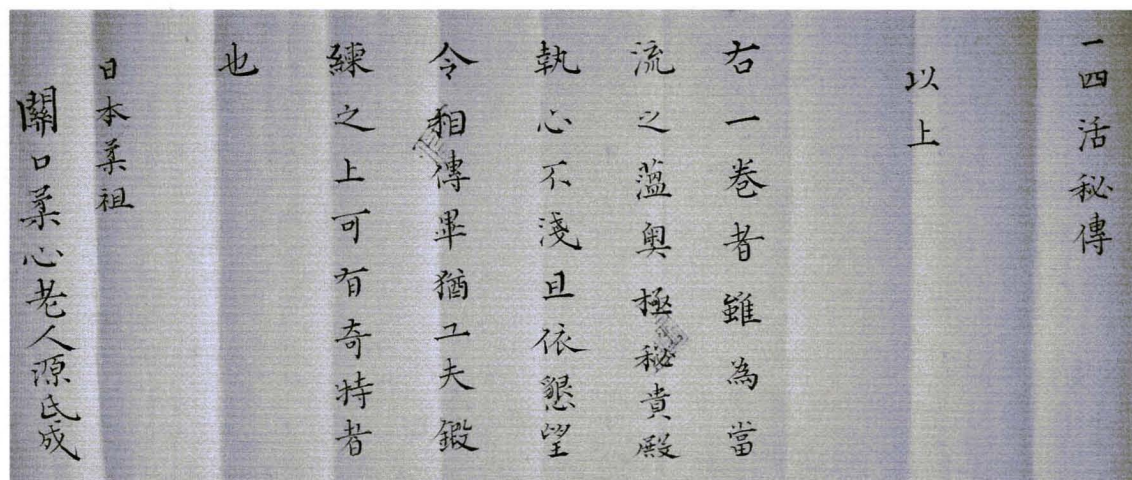 一四活秘傳
以上
右一巻者雖為當
流之薀奥極秘貴殿
執心不淺且依懇望
令相傳畢猶工夫鍛
練之上可有奇特者
也
日本柔祖
關口柔心老人源氏成